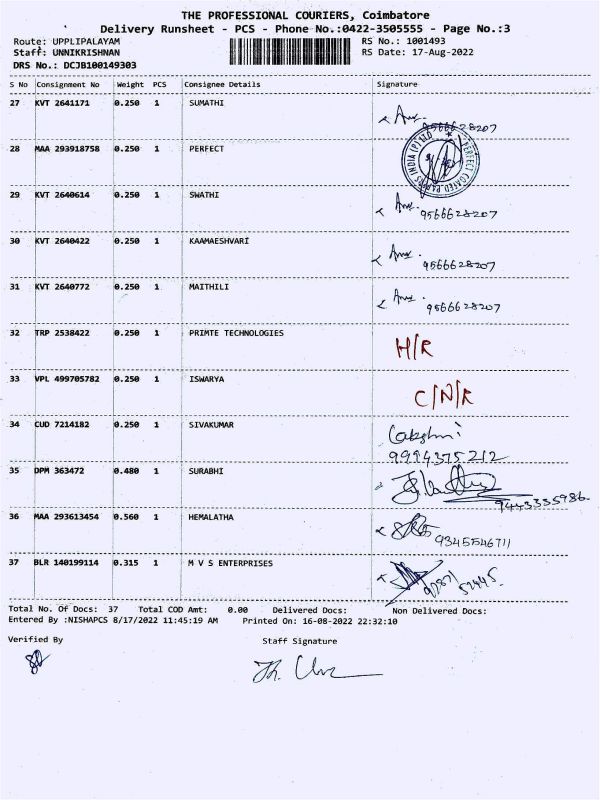 THE PROFESSIONAL COURIERS, Coimbatore
Delivery Runsheet - PCS - Phone No.:0422-3505555 - Page No.:3
Route: UPPLIPALAYAM RS No.: 1001493
Staff: UNNIKRISHNAN RS Date: 17-Aug-2022
DRS No.: DCJB100149303
S No Consignment No Weight PCS Consignee Details Signature
27 KVT 2641171 0.250 1 SUMATHI
9566628207
28 MAA 293918758 0.250 1 PERFECT
PERFECT COATED PAPERS INDIA (P) LTD
29 KVT 2640614 0.250 1 SWATHI
9566628207
30 KVT 2640422 0.250 1 KAAMAESHVARI
9566628207
31 KVT 2640772 0.250 1 MAITHILI
9566628207
32 TRP 2538422 0.250 1 PRIMTE TECHNOLOGIES H/R
33 VPL 499705782 0.250 1 ISWARYA C/N/R
34 CUD 7214182 0.250 1 SIVAKUMAR Lakshmi
9994375212
35 DPM 363472 0.480 1 SURABHI
9443335986
36 MAA 293613454 0.560 1 HEMALATHA
9345546711
37 BLR 140199114 0.315 1 M V S ENTERPRISES
Total No. Of Docs: 37 Total COD Amt: 0.00 Delivered Docs: Non Delivered Docs:
Entered By :NISHAPCS 8/17/2022 11:45:19 AM Printed On: 16-08-2022 22:32:10
Verified By Staff Signature